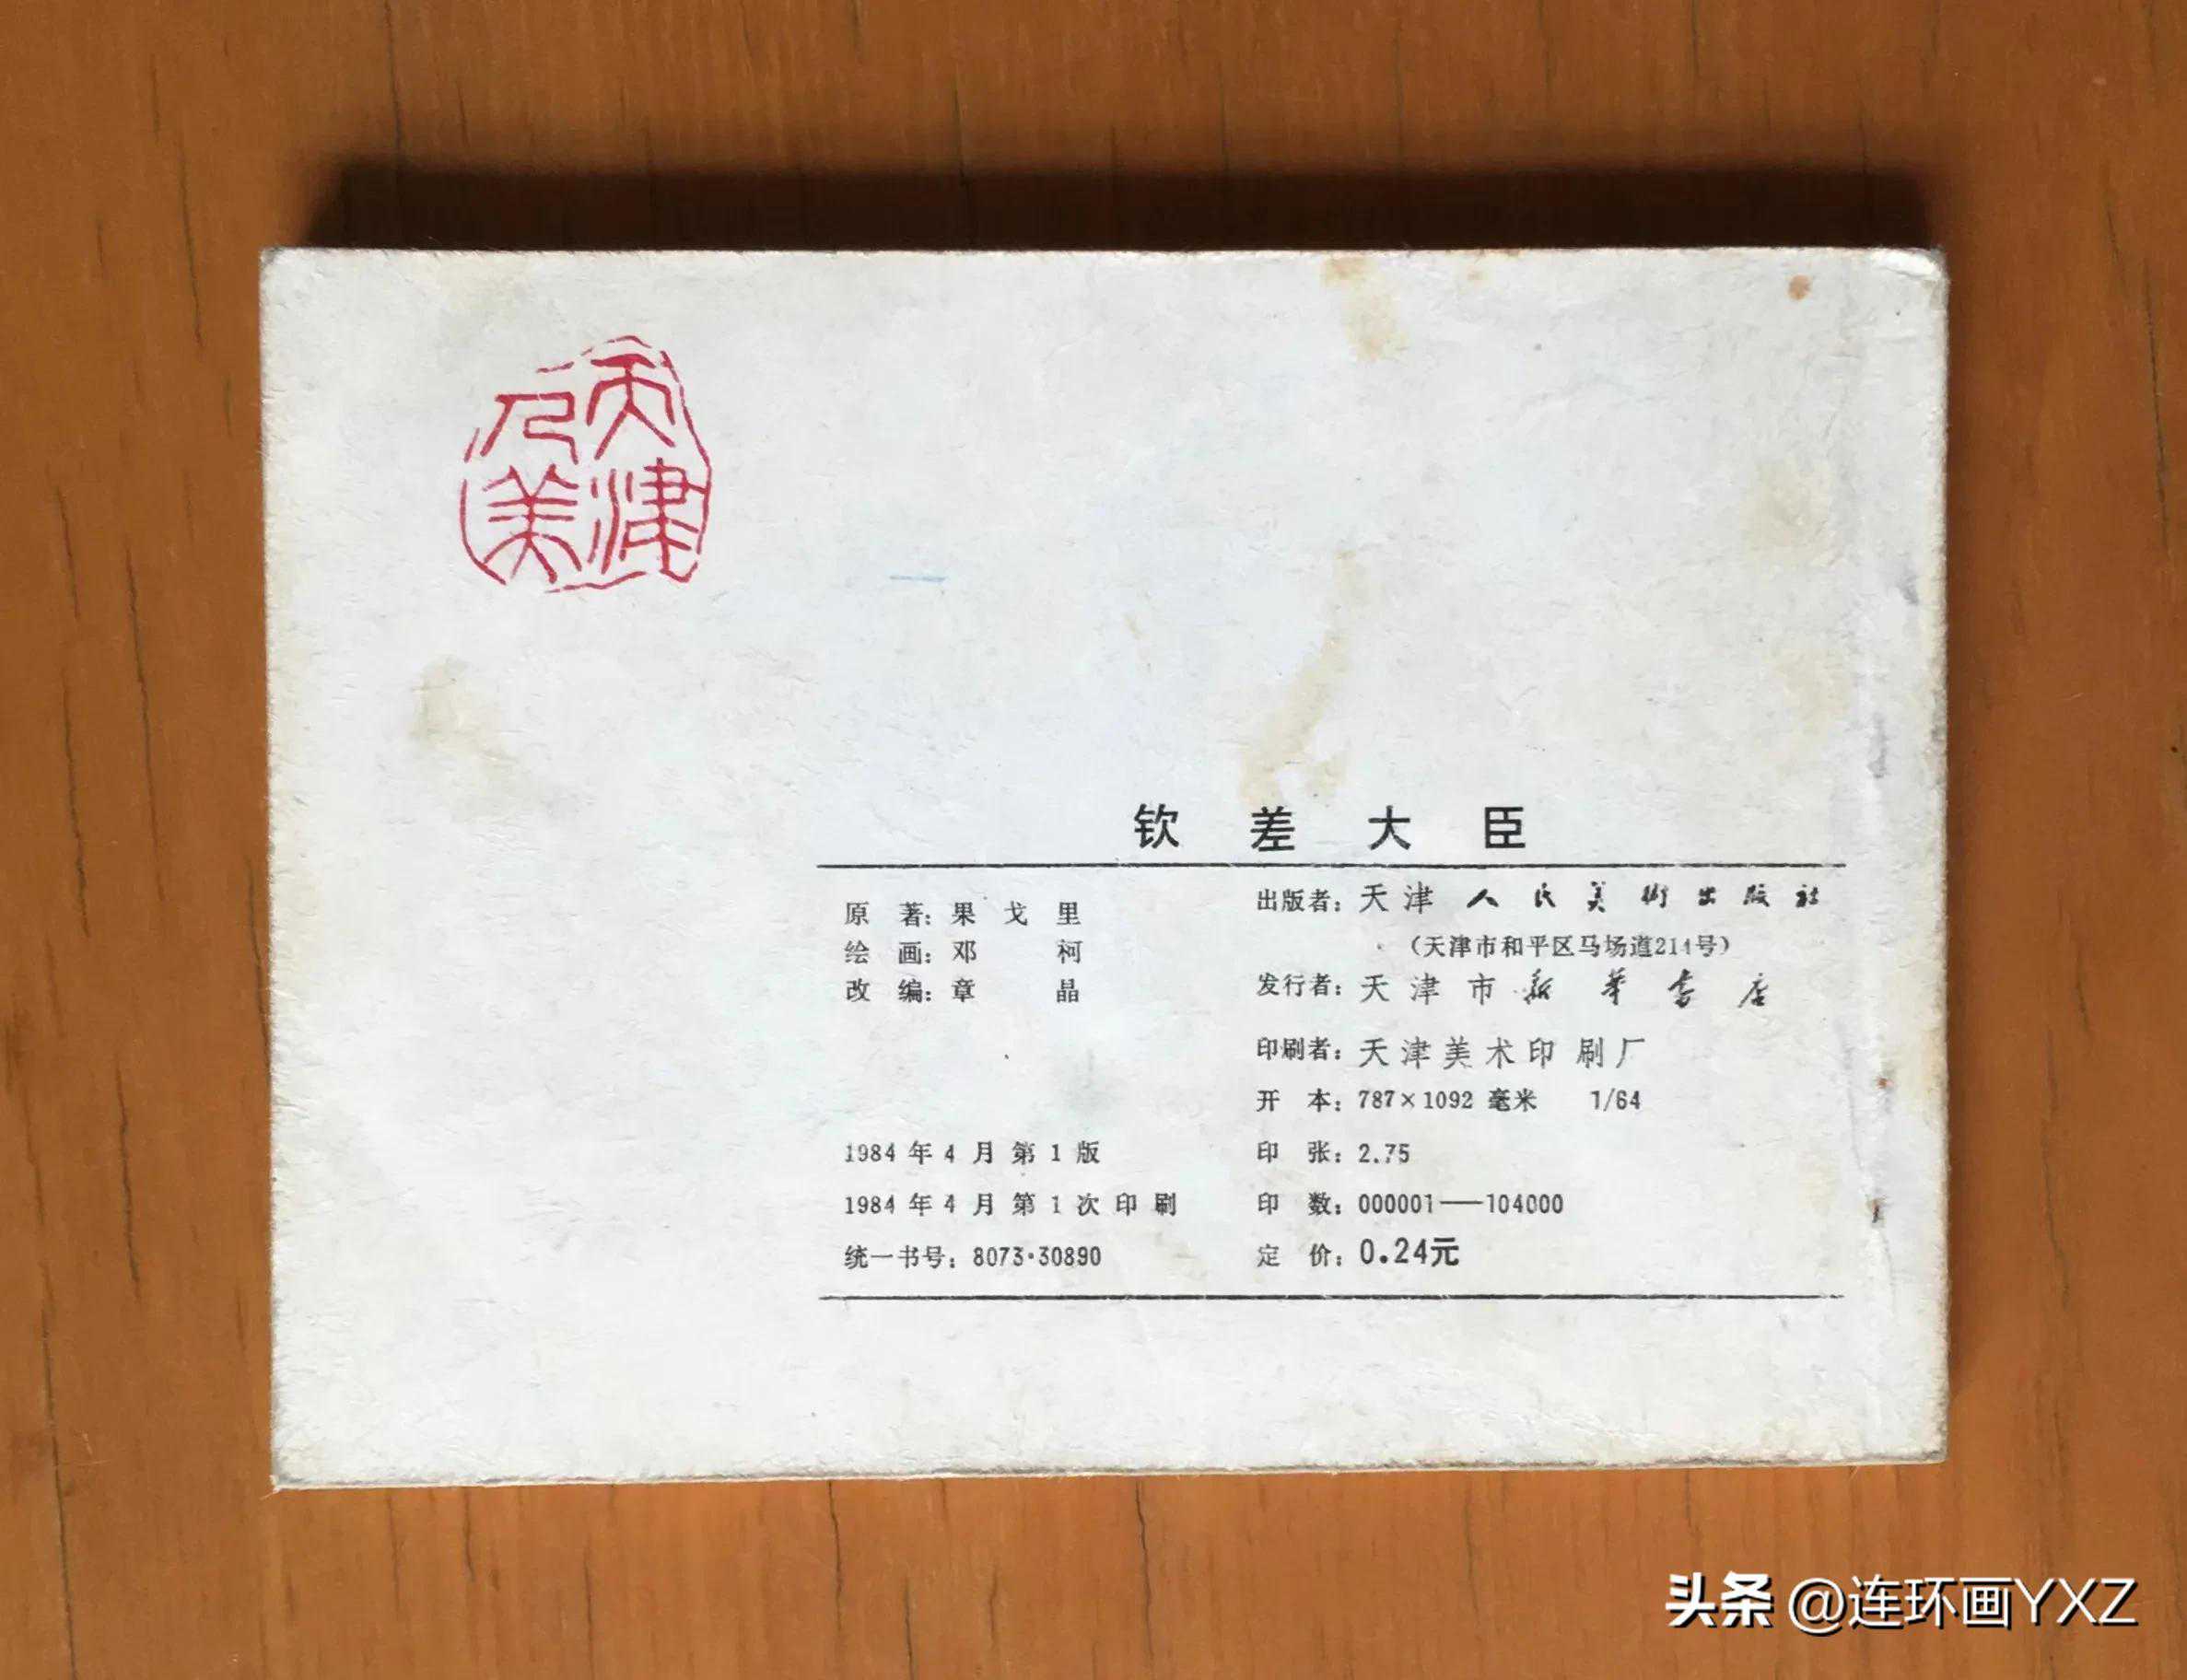 天津
人美
钦差大臣
原 著：果戈里
绘 画：邓 柯
改 编：章 晶
1984年4月第1版
1984年4月第1次印刷
统一书号：8073·30890
出版者：天津人民美術出版社
（天津市和平区马场道214号）
发行者：天津市新华书店
印刷者：天津美术印刷厂
开 本：787×1092 毫米 1/64
印 张：2.75
印 数：000001——104000
定 价：0.24元
头条 @连环画YXZ